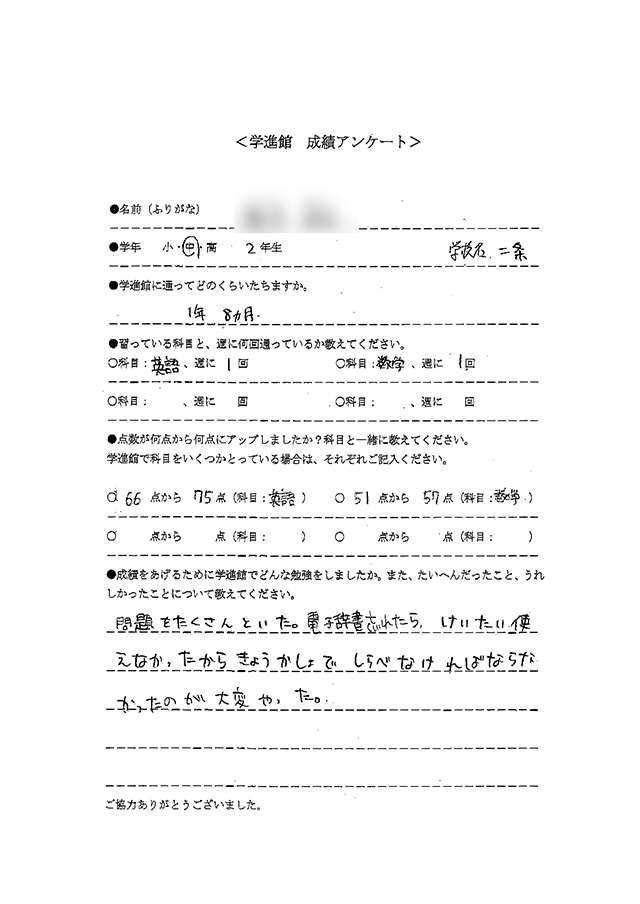 ＜学進館　成績アンケート＞
●名前（ふりがな）
●学年　小・中・高　2年生　学校名. 二条
●学進館に通ってどのくらいたちますか。
1年 8ヵ月.
●習っている科目と、週に何回通っているか教えてください。
○科目：英語、週に 1 回　○科目：数学、週に 1 回
○科目：　、週に　回　○科目：　、週に　回
●点数が何点から何点にアップしましたか？科目と一緒に教えてください。
学進館で科目をいくつかとっている場合は、それぞれご記入ください。
○ 66 点から 75 点（科目：英語）　○ 51 点から 57 点（科目：数学）
○　点から　点（科目：　）　○　点から　点（科目：　）
●成績をあげるために学進館でどんな勉強をしましたか。また、たいへんだったこと、うれ
しかったことについて教えてください。
問題をたくさんといた。電子辞書忘れたら、けいたい使
えなかったからきょうかしょで しらべなければならな
かったのが 大変やった。
ご協力ありがとうございました。